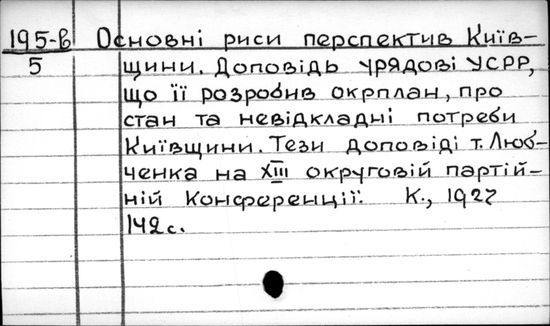 195-в Основні риси перспектив Київ-
5 щини. Доповідь урядові УСРР,
що її розробив окрплан, про
стан та невідкладні потреби
Київщини. Тези доповіді т. Люб-
ченка на XIII округовій партій-
ній конференції. К., 1927
142 с.